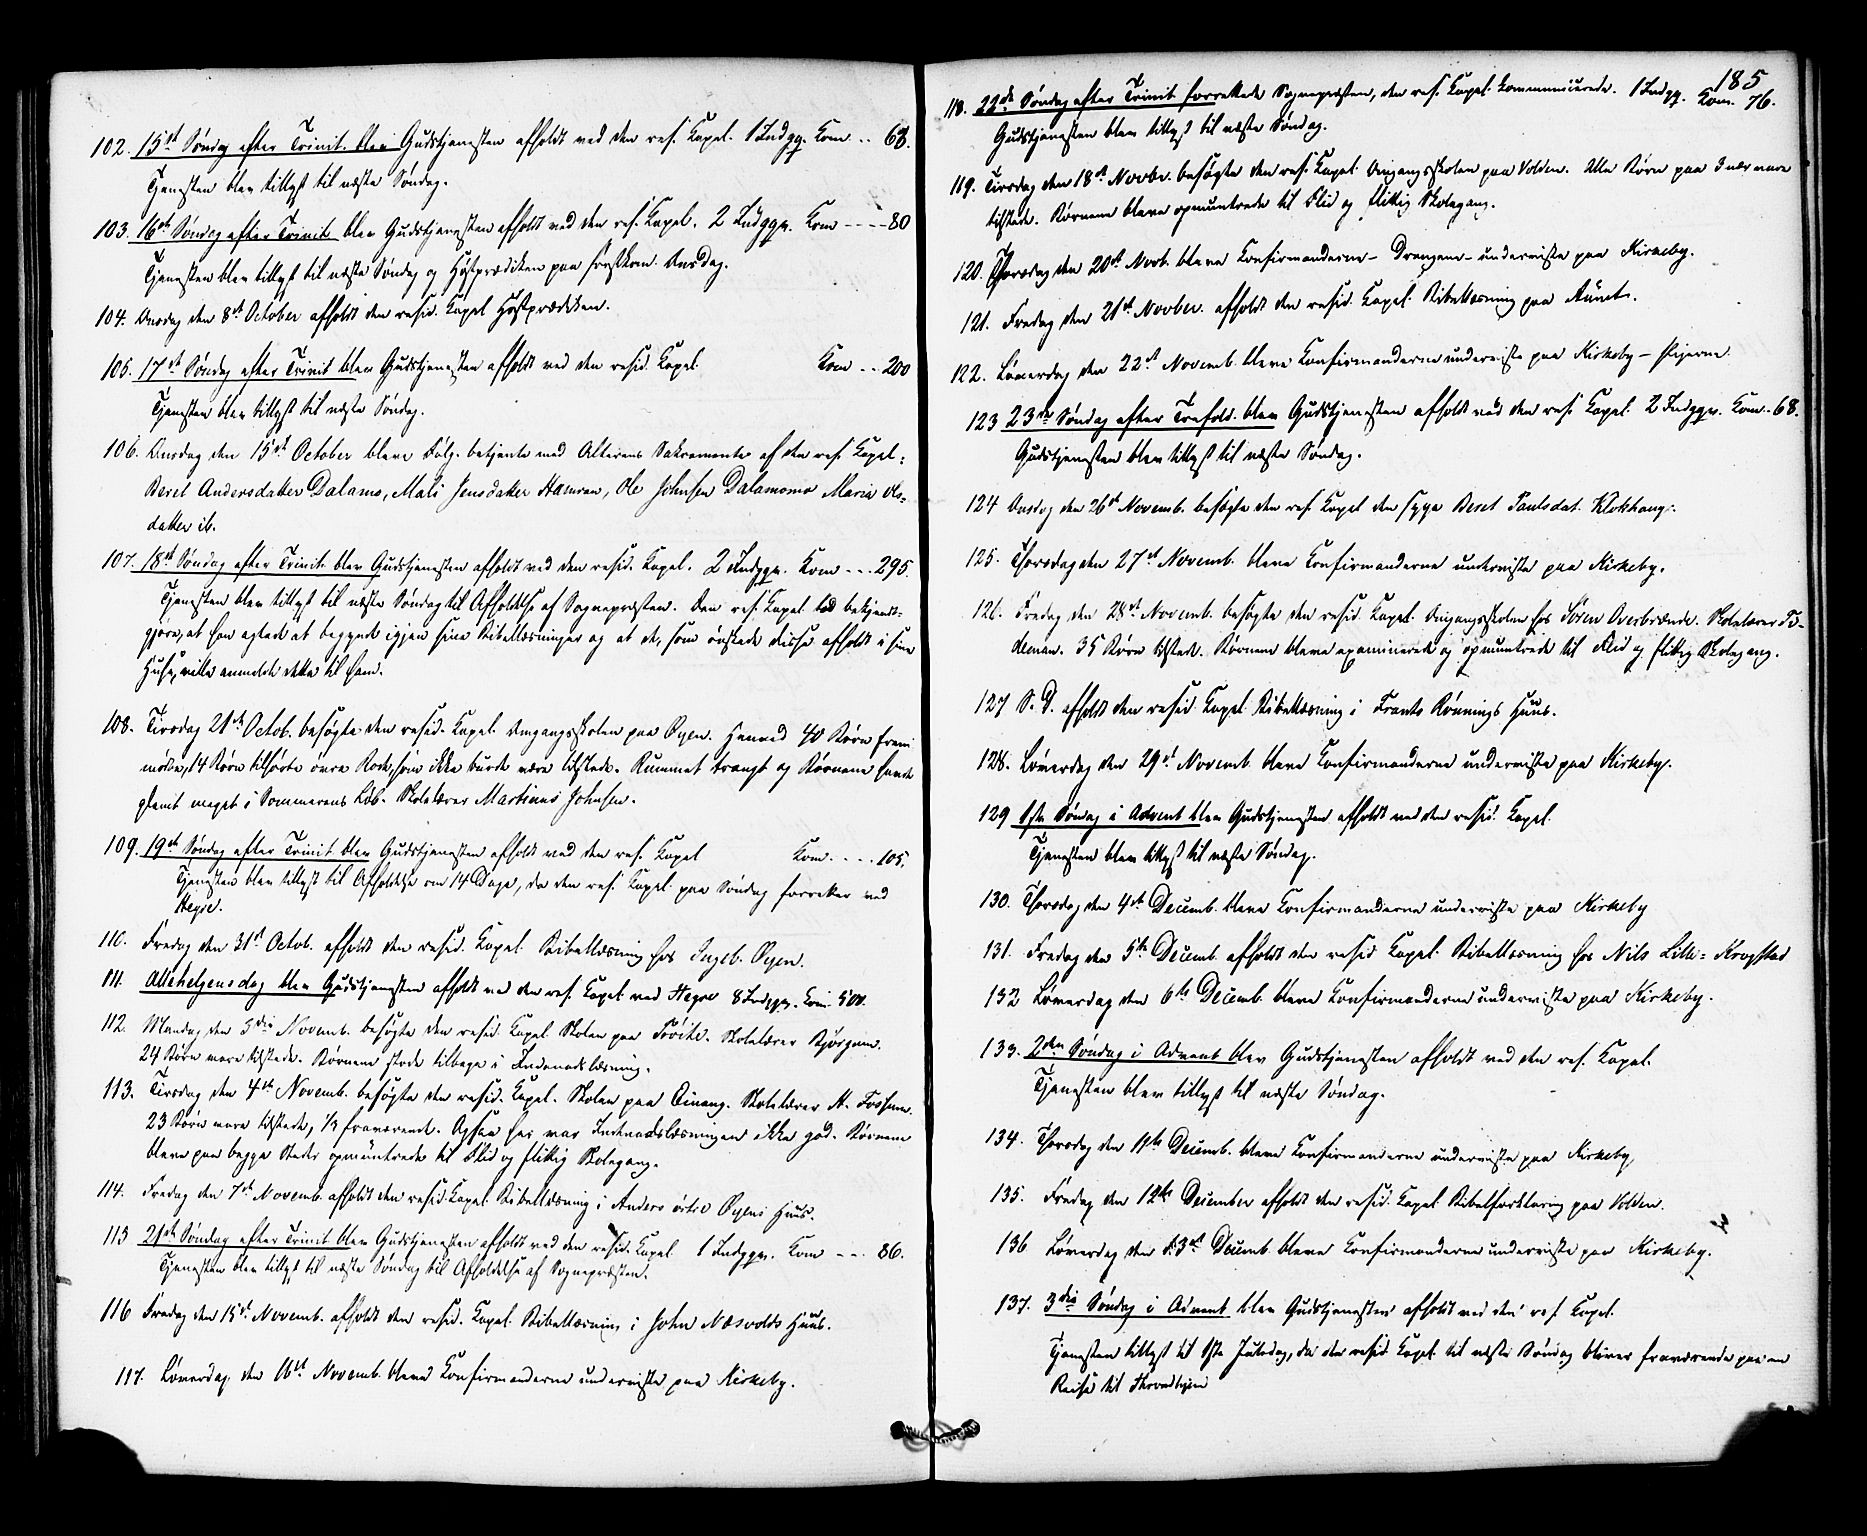 102. 15de Søndag efter Trinit. blev Gudstjenesten afholdt ved den res. Kapel. 1 Indgq. Kom -- 68.
Tjenesten blev tillyst til næste Søndag.
103. 16de Søndag efter Trinit. blev Gudstjenesten afholdt ved den res. Kapel. 2 Indgqr. Kom ---- 80
Tjenesten blev tillyst til næste Søndag og Høstprædiken paa førstkom. Onsdag.
104. Onsdag den 8de October afholdt den resid. Kapel Høstprædiken.
105. 17de Søndag efter Trinit blev Gudstjenesten afholdt ved den resid. Kapel. Kom -- 200
Tjenesten blev tillyst til næste Søndag.
106. Onsdag den 15de October bleve Følg. betjente med Alterens Sakramente af den res. Kapel:
Beret Andersdatter Dalamo, Mali Jensdatter Hamran, Ole Johnsen Dalamomo Maria Ols-
datter ib.
107. 18de Søndag efter Trinit. blev Gudstjenesten afholdt ved den resid. Kapel. 2 Indgqr. Kom --- 295.
Tjenesten blev tillyst til næste Søndag til Afholdelse af Sognepræsten. Den res. Kapel lod bekjendt-
gjøre, at han agted at begynde igjen sine Bibellæsninger og at de, som ønskede disse afholdt i sine
Huse, ville anmelde dette til ham.
108. Tirsdag 21de Octob. besøgte den resid. Kapel. Omgangsskolen paa Øyen. Henved 40 Børn frem
mødte, 14 Børn tilhørte øvre Rode, som ikke burde være tilstede. Rummet trangt og Børnene havde
glemt meget i Sommerens Løb. Skolelærer Martinus Johnsen.
109. 19de Søndag efter Trinit blev Gudstjenesten afholdt ved den res. Kapel Kom ---- 105.
Tjenesten blev tillyst til Afholdelse om 14 Dage, da den res. Kapel. paa Søndag forretter ved
Hegre.
110. Fredag den 31te Octob. afholdt den resid. Kapel. Bibellæsning hos Ingeb. Øyen.
111. Allehelgensdag blev Gudstjenesten afholdt ved den res. Kapel ved Hegre 8 Indgqr. Kom. 500.
112. Mandag den 3die Novemb. besøgte den resid. Kapel Skolen paa Skolelærer Bjørgum.
24 Børn vare tilstede. Børnene stode tilbage i Indenadslæsning.
113. Tirsdag den 4de Novemb. besøgte den resid. Kapel. Skolen paa Einang. Skolelærer H. Fossum.
23 Børn vare tilstede, 1/3 fraværende. Ogsaa her var Indenadslæsningen ikke god. Børnene
bleve paa begge Steder opmuntrede til Flid og flittig Skolegang.
114. Fredag den 7de Novemb. afholdt den resid. Kapel. Bibellæsning i Anders østre Øyens Huus.
115 21de Søndag efter Trinit blev Gudstjenesten afholdt ved den resid. Kapel 1 Indgqr. Kom --- 86.
Tjenesten blev tillyst til næste Søndag til Afholdelse af Sognepræsten.
116 Fredag den 15de Novemb. afholdt den resid. Kapel. Bibellæsning i John Næsvolds Huus.
117. Løverdag den 16de Novemb. bleve Konfirmanderne underviste paa Kirkeby.
185
118. 22de Søndag efter Trinit forrettede Sognepræsten, den res. Kapel. kommunicerede. 1 Indgq. Kom. 76.
Gudstjenesten blev tillyst til næste Søndag.
119. Tirsdag den 18de Novbr. besøgte den res. Kapel. Omgangsskolen paa Volden. Alle Børn paa 3 nær vare
tilstede. Børnene bleve opmuntrede til Flid og flittig Skolegang.
120. Thorsdag den 20de Novb. bleve Konfirmanderne - Drengene - underviste paa Kirkeby.
121. Fredag den 21de Novber. afholdt den resid. Kapel. Bibellæsning paa Aünet.
122. Løverdag den 22de Novemb. bleve Konfirmanderne underviste paa Kirkeby - Pigerne.
123 23de Søndag efter Trefold. blev Gudstjenesten afholdt ved den res. Kapel. 2 Indgqr. Kom. 68.
Gudstjenesten blev tillyst til næste Søndag.
124 Onsdag den 26de Novemb. besøgte den res. Kapel den syge Beret Paulsdat. Klokhaug.
125. Thorsdag den 27de Novemb. bleve Konfirmanderne underviste paa Kirkeby.
126. Fredag den 28de Novemb. besøgte den resid. Kapel. Omgangsskolen hos Sören Overbrænde. Skolelærer Ti-
deman. 35 Børn tilstede. Børnene bleve examinerede og opmuntrede til Flid og flittig Skolegang.
127 S. D. afholdt den resid. Kapel Bibellæsning i Frants Rønnings Huus.
128. Løverdag den 29de Novemb. bleve Konfirmanderne underviste paa Kirkeby.
129 1ste Søndag i Advent blev Gudstjenesten afholdt ved den resid. Kapel.
Tjenesten blev tillyst til næste Søndag.
130. Thorsdag den 4de Decemb. bleve Konfirmanderne underviste paa Kirkeby
131. Fredag den 5te Decemb. afholdt den resid Kapel. Bibellæsning hos Nils Lille-Krogstad
132 Løverdag den 6te Decemb. bleve Konfirmanderne underviste paa Kirkeby.
133. 2den Søndag i Advent blev Gudstjenesten afholdt ved den res. Kapel.
Tjenesten blev tillyst til næste Søndag.
134. Thorsdag den 11te Decemb. bleve Konfirmanderne underviste paa Kirkeby,
135. Fredag den 12te December afholdt den resid. Kapel Bibelforklaring paa Volden.
136 Løverdag den 13de Decemb. bleve Konfirmanderne underviste paa Kirkeby.
137. 3die Søndag i Advent blev Gudstjenesten afholdt ved den res. Kapel.
Tjenesten tillyst til 1ste Juledag, da den resid. Kapel til næste Søndag bliver fraværende paa en
Reise til Throndhjem